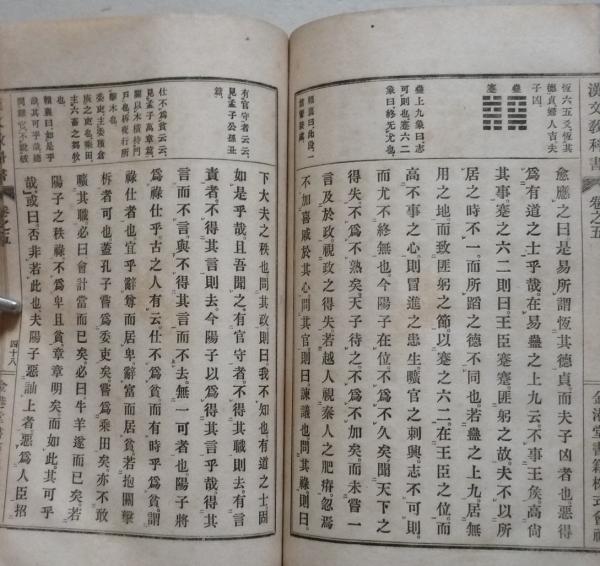 漢文教科書 卷之五
金港堂書籍株式會社
恆六五爻恆其
德貞婦人吉夫
子凶
蠱
蹇
蠱上九象曰志
可則也蹇六二
象曰終无尤也
愈應之曰是易所謂恆其德貞而夫子凶者也惡得
爲有道之士乎哉在易蠱之上九云不事王侯高尙
其事蹇之六二則曰王臣蹇蹇匪躬之故夫不以所
居之時不一而所蹈之德不同也若蠱之上九居無
用之地而致匪躬之節以蹇之六二在王臣之位而
高不事之心則冒進之患生曠官之刺興志不可則
而尤不終無也今陽子在位不爲不久矣聞天下之
得失不爲不熟矣天子待之不爲不加矣而未嘗一
言及於政視政之得失若越人視秦人之肥瘠忽焉
不加喜戚於其心問其官則曰諫議也問其祿則曰
有官守者云云
見孟子公孫丑
篇
仕不爲貧云云
見孟子萬章篇
關以木橫持門
戶也柝夜行所
擊木也
委吏主委積倉
庾之吏也乘田
主六畜之芻牧
也
下大夫之秩也問其政則曰我不知也有道之士固
如是乎哉且吾聞之有官守者不得其職則去有言
責者不得其言則去今陽子以爲得其言乎哉得其
言而不言與不得其言而不去無一可者也陽子將
爲祿仕乎古之人有云仕不爲貧而有時乎爲貧謂
祿仕者也宜乎辭尊而居卑辭富而居貧若抱關擊
柝者可也蓋孔子嘗爲委吏矣嘗爲乘田矣亦不敢
曠其職必曰會計當而已矣必曰牛羊遂而已矣若
陽子之秩祿不爲卑且貧章章明矣而如此其可乎
哉或曰否非若此也夫陽子惡訕上者惡爲人臣招
卷之五
四十八